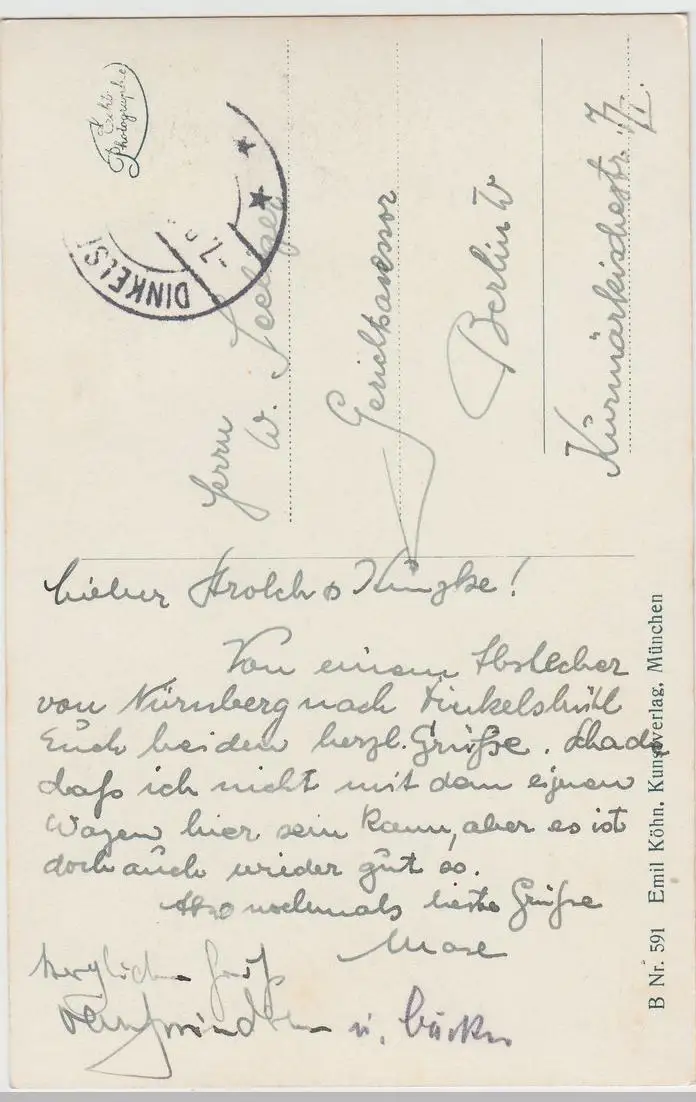 Echte
Photographie
DINKELS
Herrn
W.
Berlin W
Kurmärkischestr.
Lieber Strolch
Von einem Abstecher
von Nürnberg nach Dinkelsbühl
Euch beiden herzl. Grüße. Schade
daß ich nicht mit dem eignen
Wagen hier sein kann, aber es ist
doch auch wieder gut so.
Also nochmals beste Grüße
herzlichen Gruß
u.
B Nr. 591 Emil Köhn, Kunstverlag, München